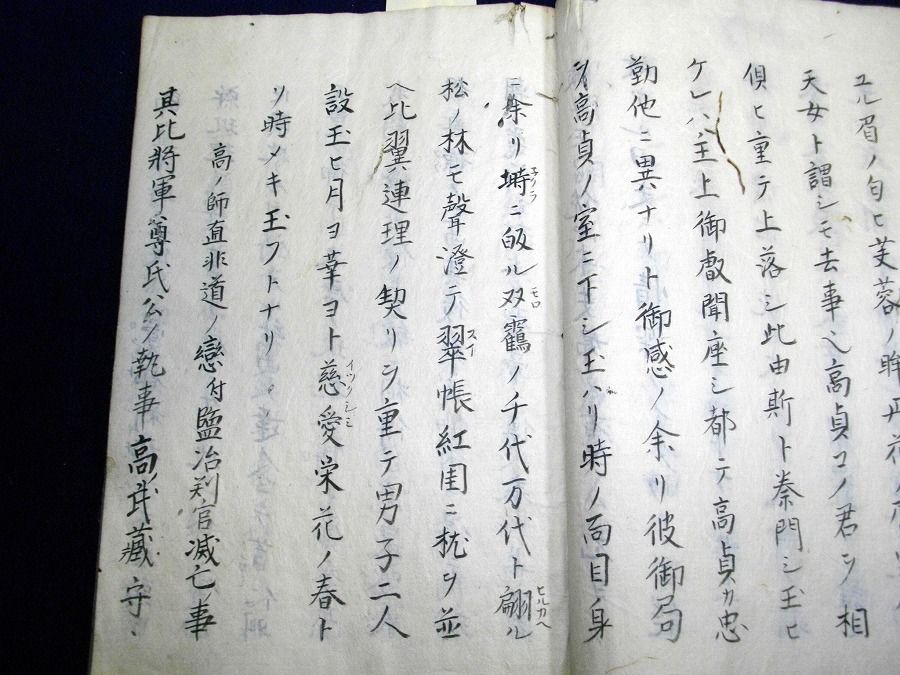 ユル眉ノ匂ヒ芙蓉ノ眸丹花ノ
天女ト謂シモ去事也高貞コノ君ヲ相
倶ヒ重テ上洛シ此由斯ト奏聞シ玉ヒ
ケレハ主上御叡聞座シ都テ高貞カ忠
勤他ニ異ナリト御感ノ余リ彼御局
ヲ高貞ノ室ニ下シ玉ハリ時ノ面目身
ニ余リ塒ニ皈ル双靏ノ千代万代ト翩ル
松ノ林モ聲澄テ翠帳紅閨ニ枕ヲ並
ヘ比翼連理ノ契リヲ重テ男子二人
設玉ヒ月ヨ華ヨト慈愛栄花ノ春ト
ソ時メキ玉フトナリ。
高ノ師直非道ノ戀付鹽冶判官滅亡ノ事
其比將軍尊氏公ノ執事高武藏守